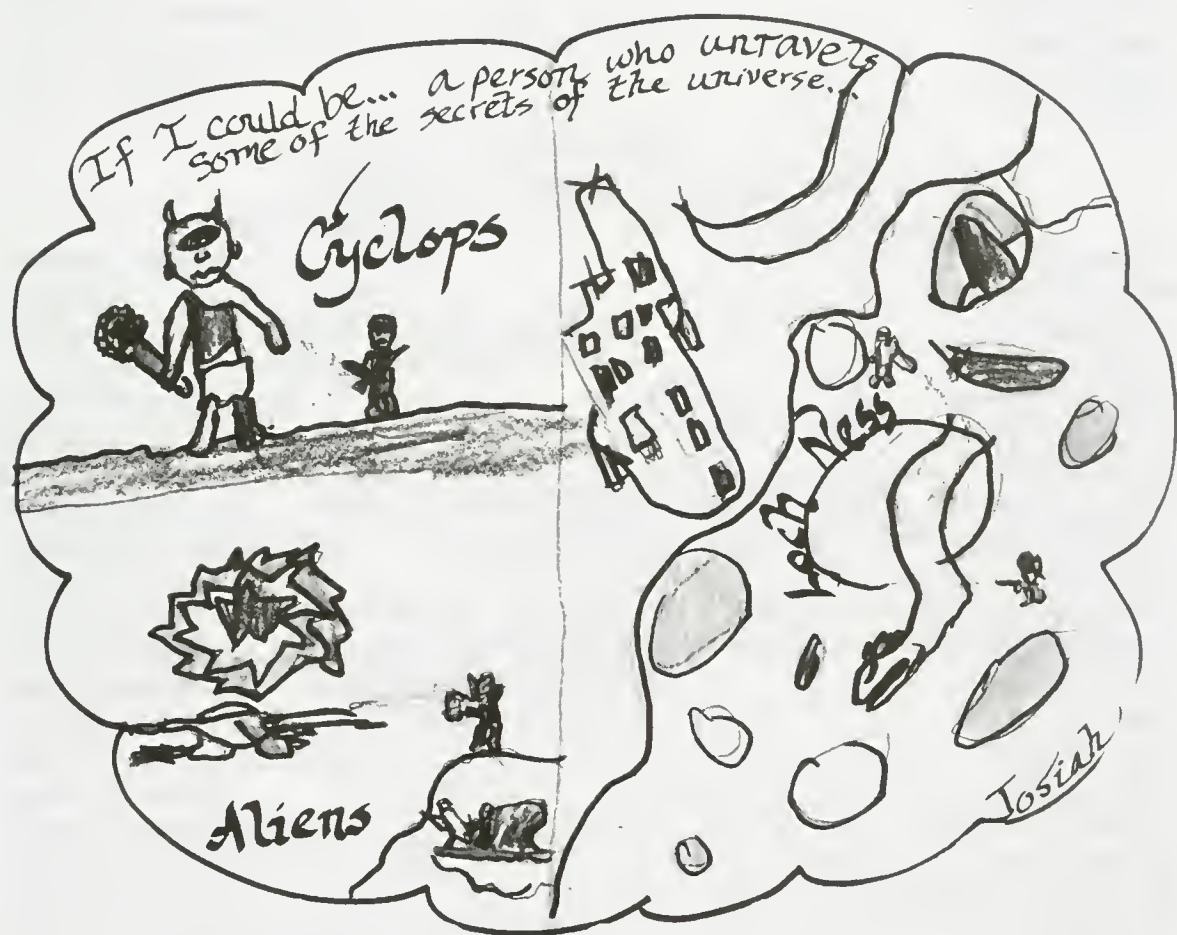 If I could be... a person who unravels
some of the secrets of the universe...
Cyclops
Loch Ness
Aliens
Josiah